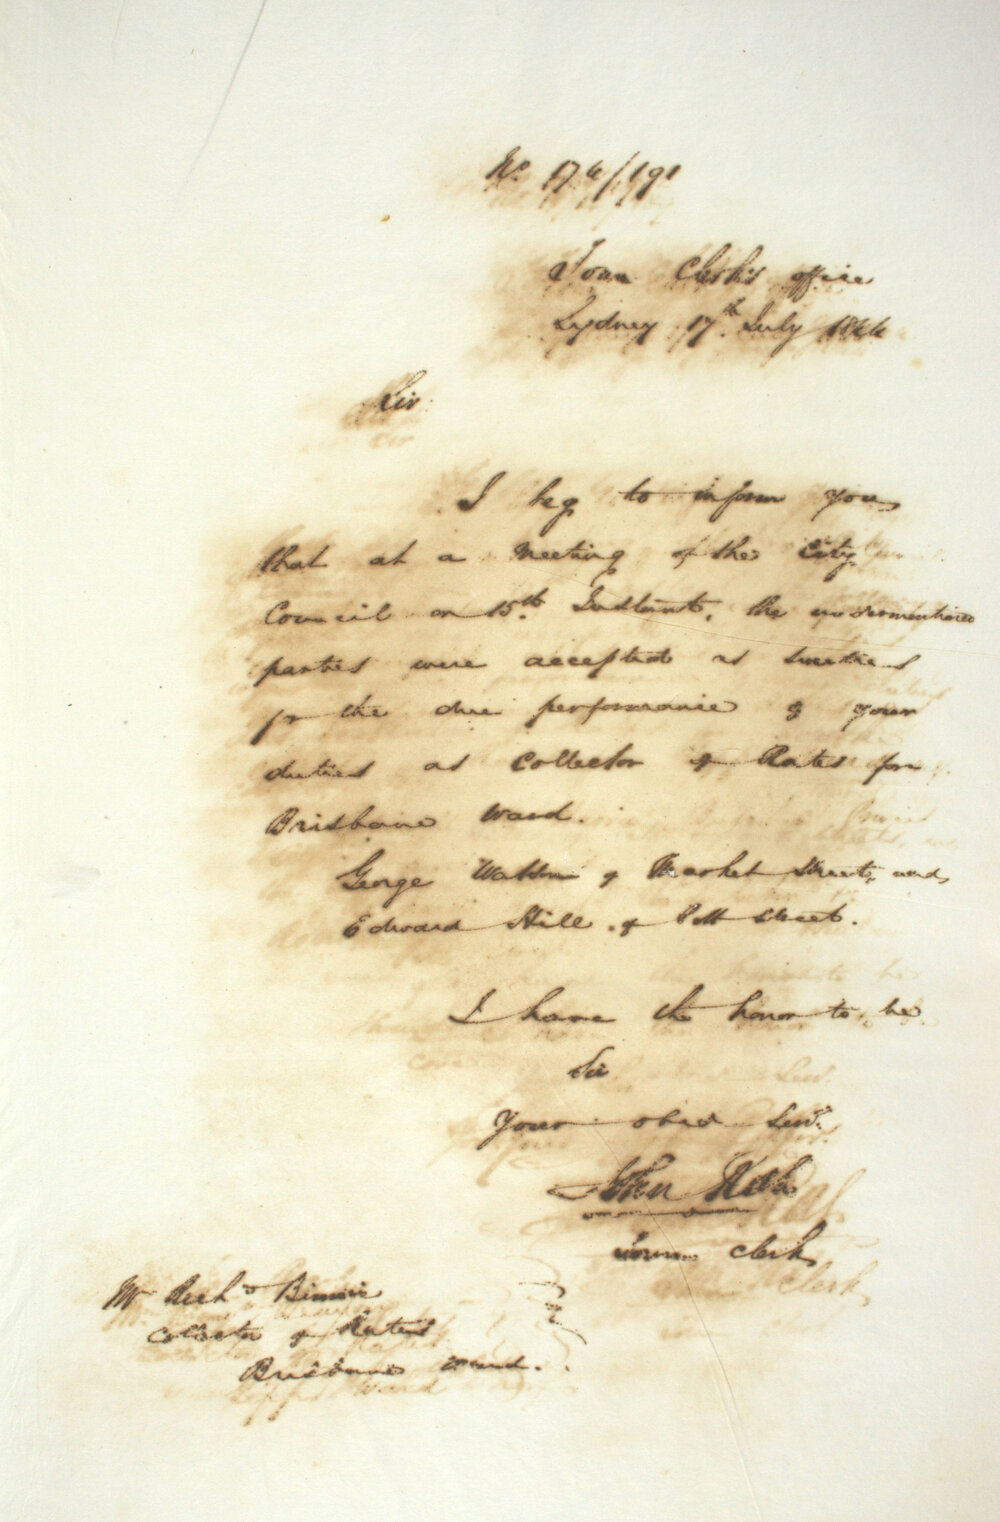 No 174/191
Town Clerk's office
Sydney 17th July 1844
Sir
I beg to inform you
that at a Meeting of the City
Council on 15th Instant, the undermentioned
parties were accepted as sureties
for the due performance of your
duties as Collector of Rates for
Brisbane Ward.
George Watson of Market Street, and
Edward Hill of Pitt Street.
I have the honor to be
Sir
Your obed Servt
John
Town Clerk
Mr Richd Binnie
Collector of Rates
Brisbane Ward.